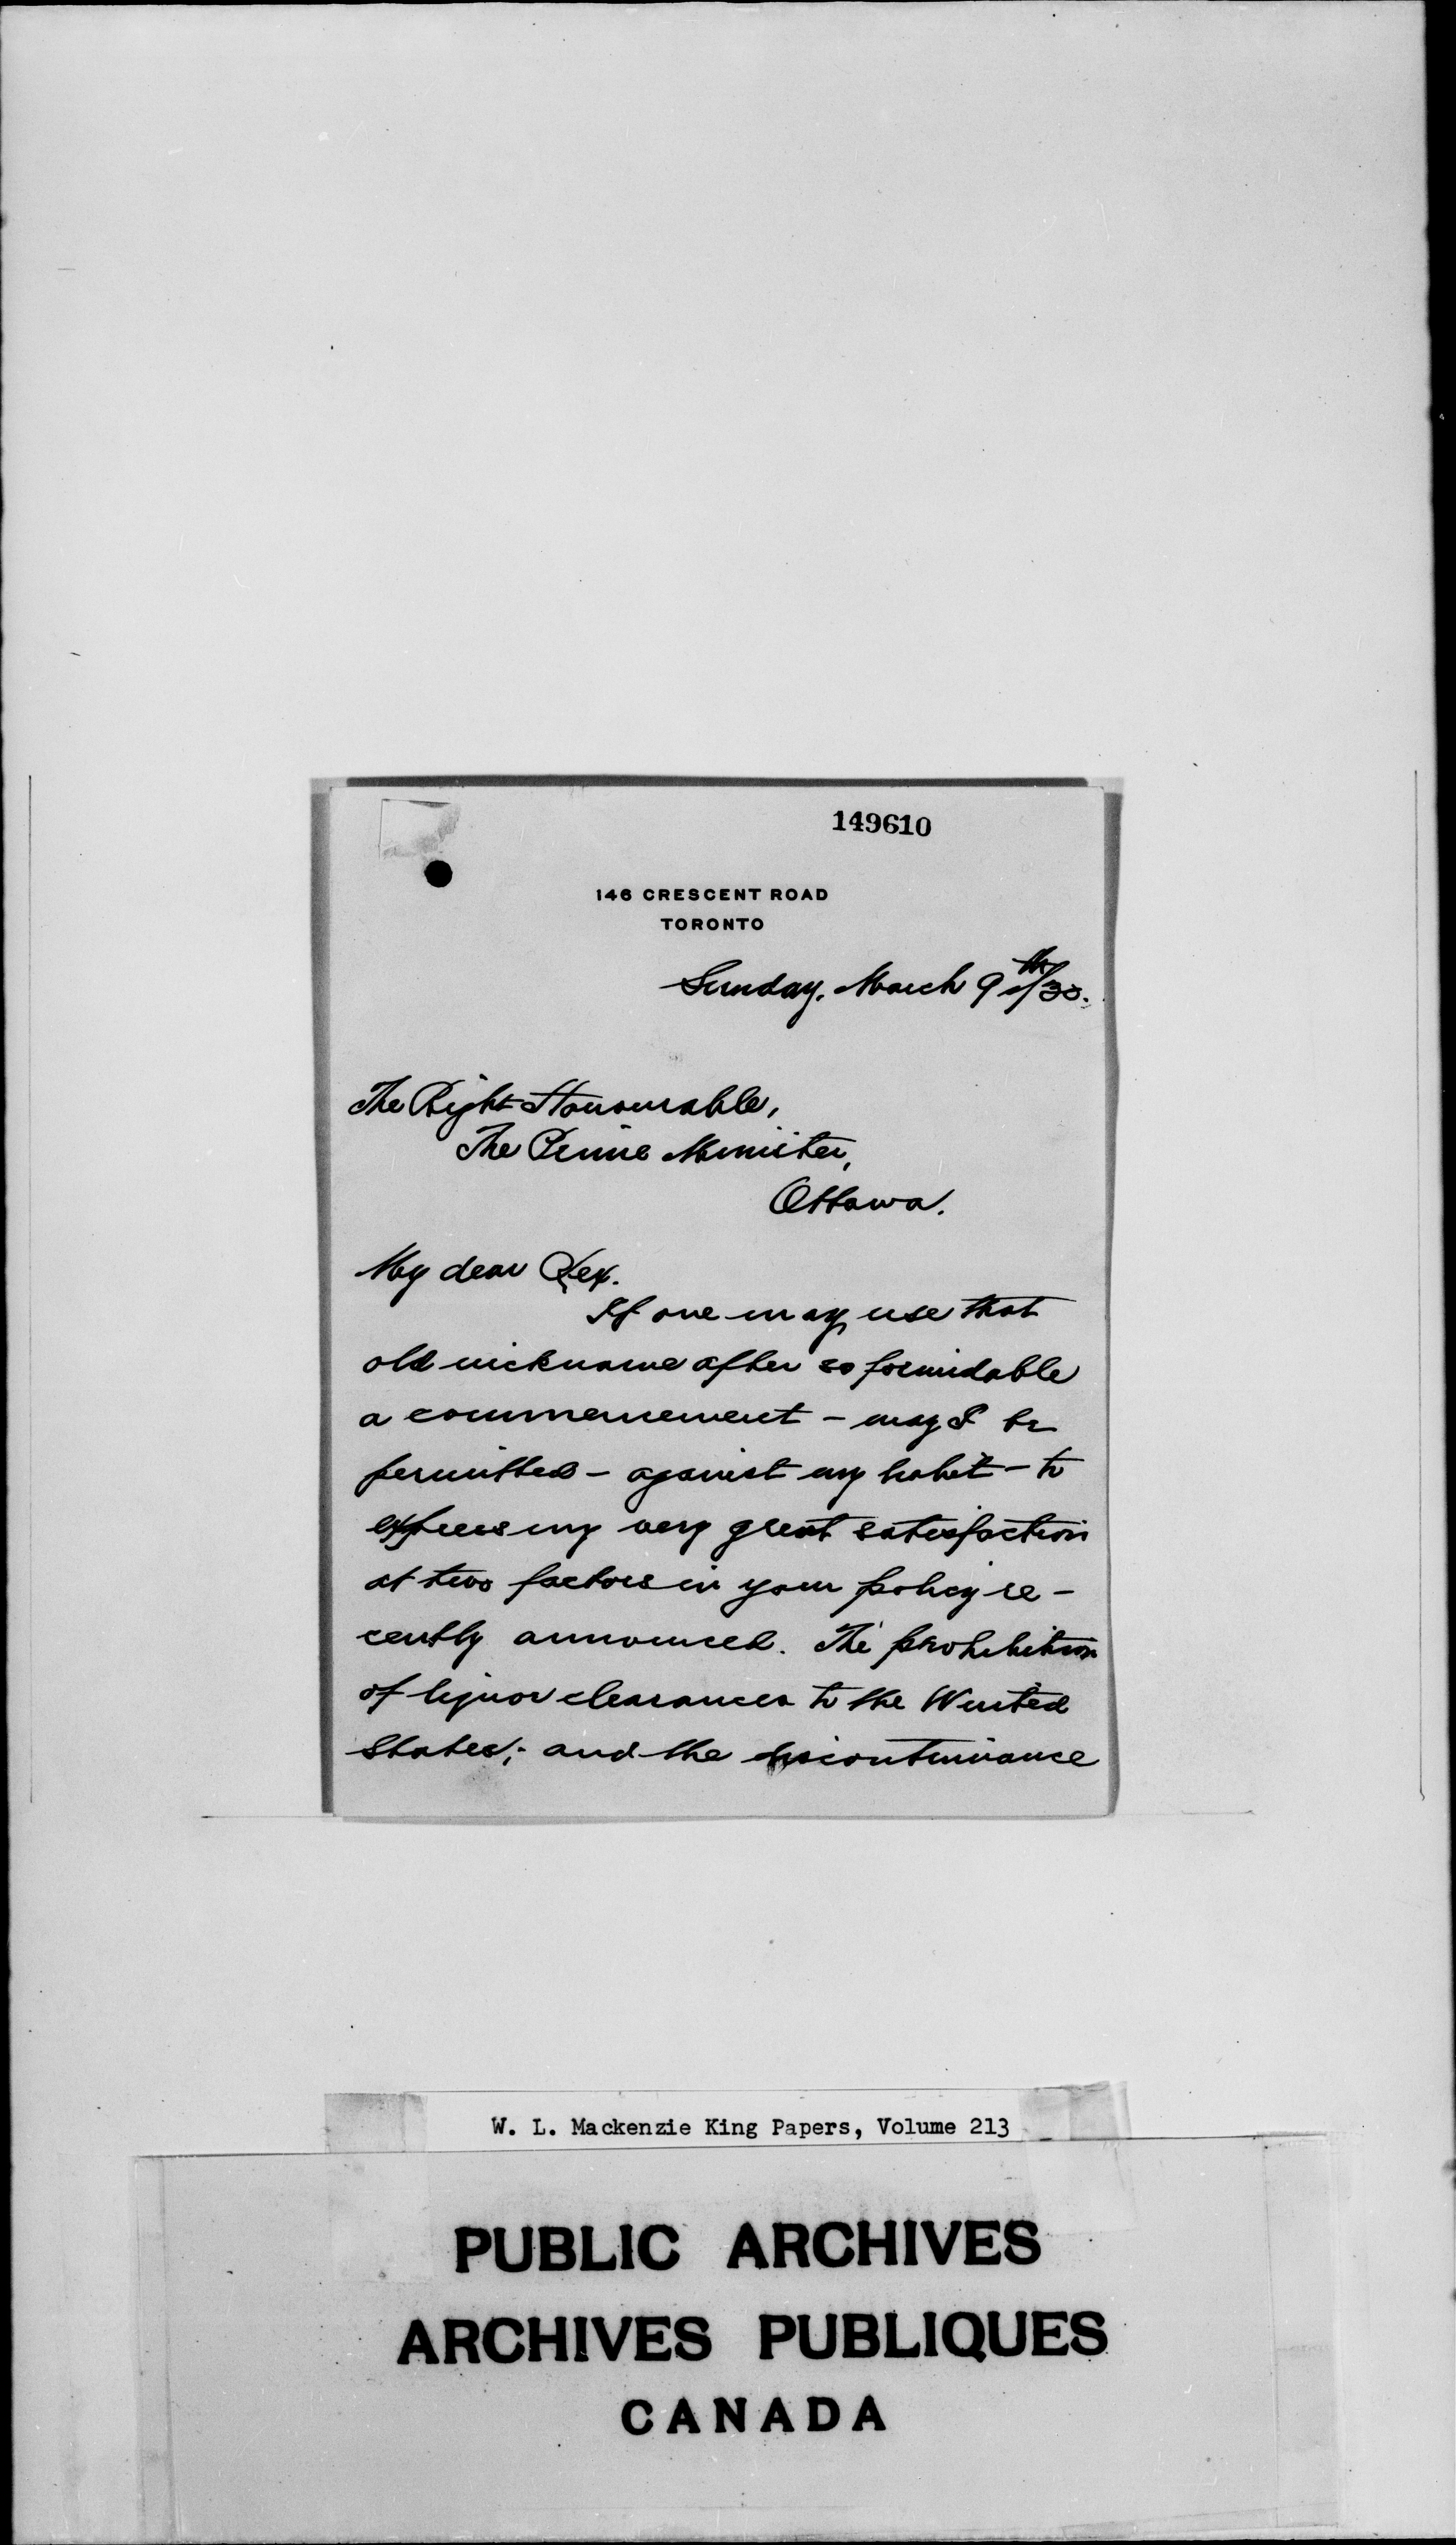 149610
146 CRESCENT ROAD
TORONTO
Sunday, March 9th/30.
The Right Honourable,
The Prime Minister,
Ottawa.
My dear Rex.
If one may use that
old nickname after so formidable
a commencement - may I be
permitted - against my habit - to
express my very great satisfaction
at two factors in your policy re-
cently announced. The prohibition
of liquor clearances to the United
States; - and the discontinuance
W. L. Mackenzie King Papers, Volume 213
PUBLIC ARCHIVES
ARCHIVES PUBLIQUES
CANADA